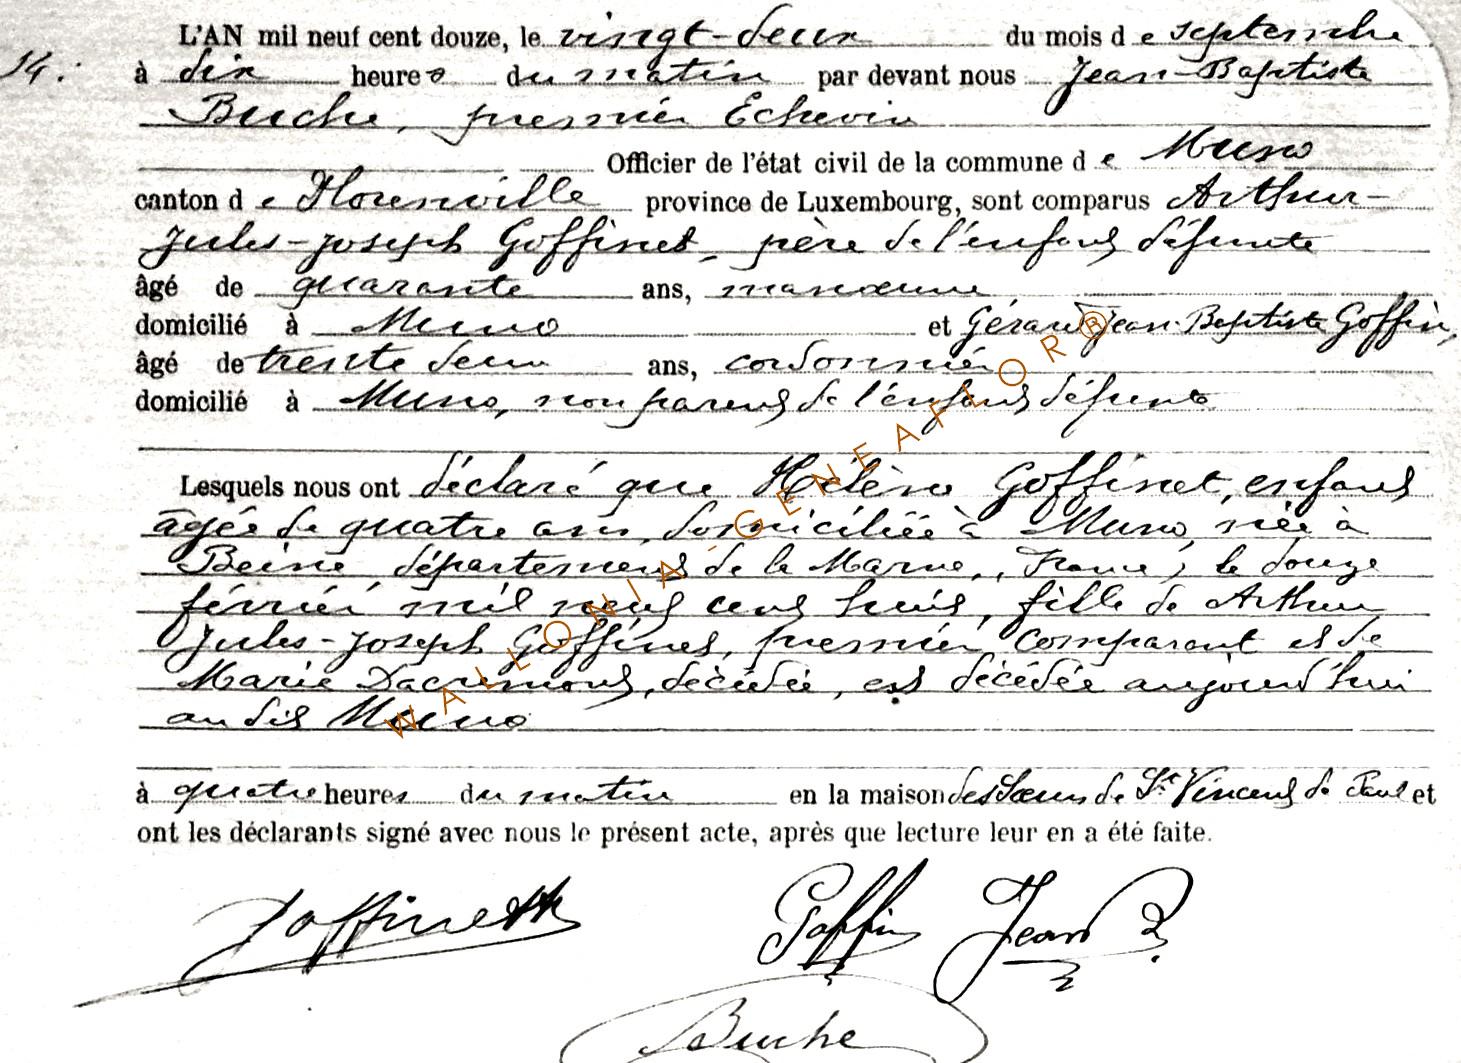 L'AN mil neuf cent douze, le vingt-deux du mois de septembre
14. à dix heures du matin par devant nous Jean-Baptiste
Buche, premier Echevin
Officier de l'état civil de la commune de Muno
canton de Florenville province de Luxembourg, sont comparus Arthur-
Jules-Joseph Goffinet, père de l'enfant défunte
âgé de quarante ans, manœuvre
domicilié à Muno et Gérard Jean Baptiste Goffin,
âgé de trente deux ans, cordonnier
domicilié à Muno, non parent de l'enfant défunte
Lesquels nous ont déclaré que Hélène Goffinet, enfant
âgée de quatre ans, domiciliée à Muno, née à
Beine, département de la Marne, (France) le douze
février mil neuf cent huit, fille de Arthur
Jules-Joseph Goffinet, premier comparant et de
Marie Dacremont, décédée, est décédée aujourd'hui
au dit Muno
à quatre heures du matin en la maison des Sœurs de St Vincent de Paul et
ont les déclarants signé avec nous le présent acte, après que lecture leur en a été faite.
Goffinet Goffin Jean B.
Buche
WALLONIA-GENEAFLOR®